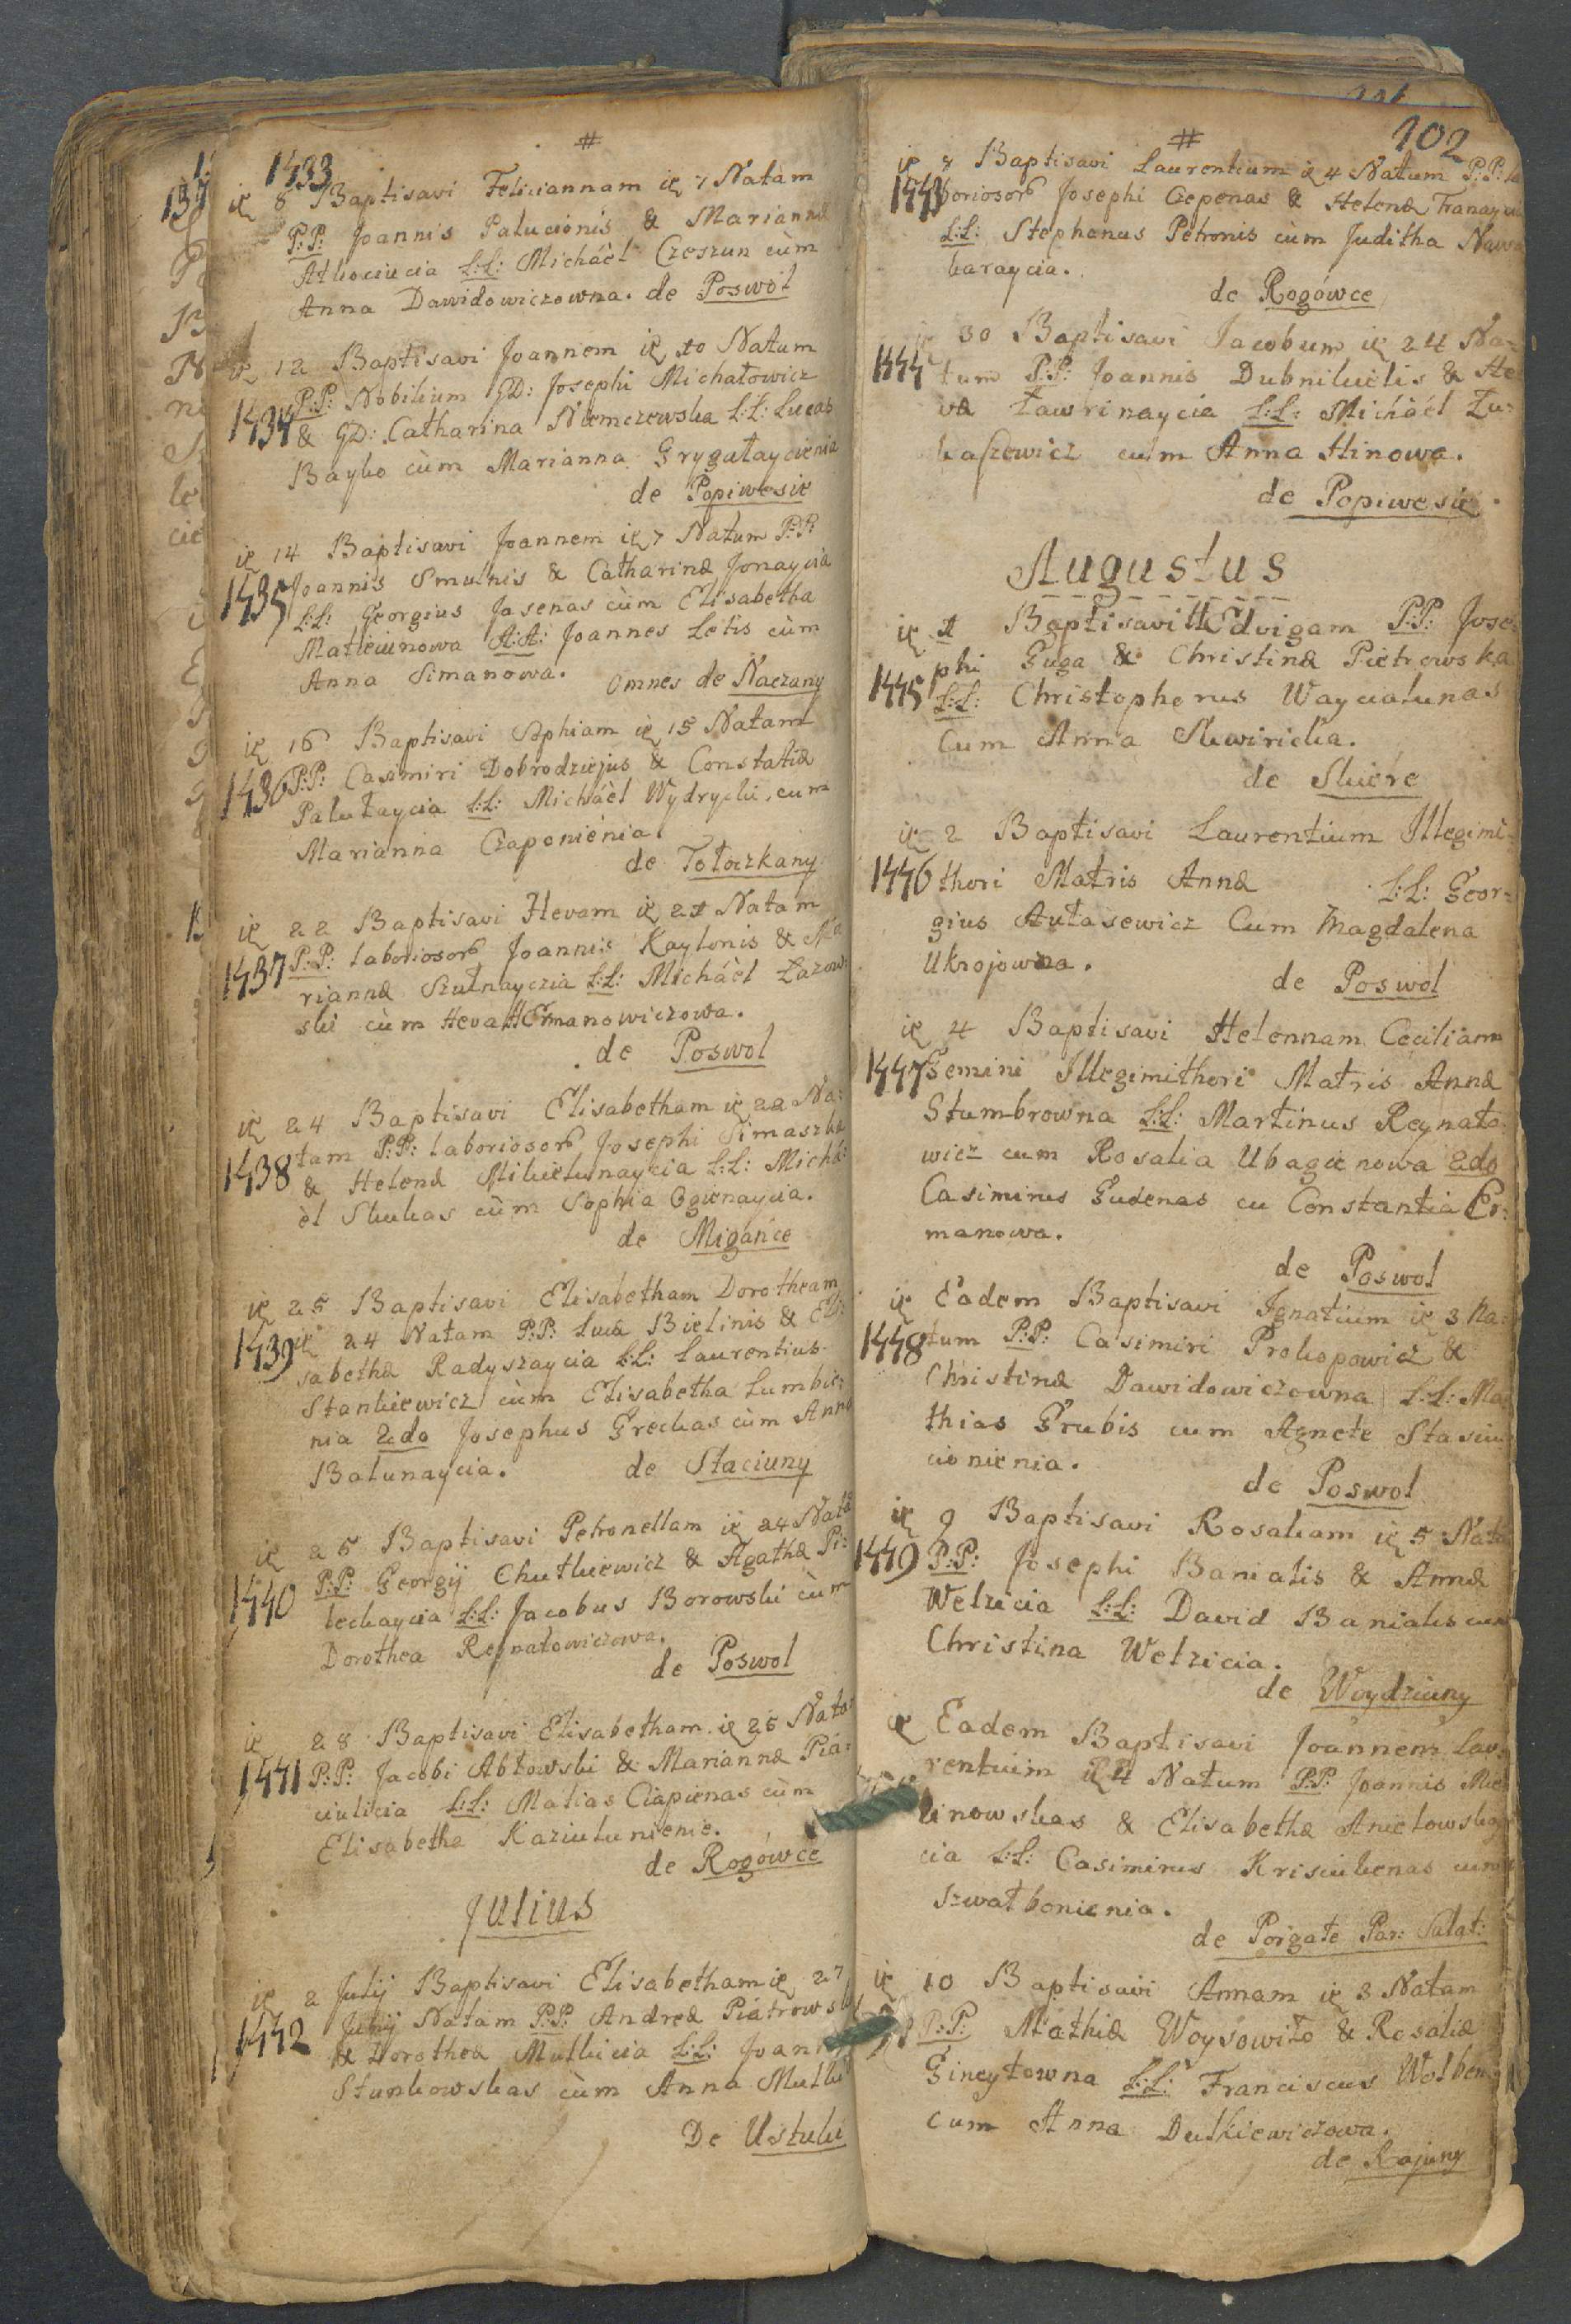 #
1433
ie 8 Baptisavi Feliciannam ie 7 Natam
P:P: Joannis Palucionis & Mariannæ
L:L: Michäèl Czeszun cùm
Anna Dawidowiczowna. de Poswol
ie 12 Baptisavi Joannem ie 10 Natum
P:P: Nobilium GD: Josephi Michałowicz
1434 & GD: Catharina Niemczewska L:L: Lucas
Bayko cùm Marianna Grygałaycienia
de Popiwesie
ie 14 Baptisavi Joannem ie 7 Natum P:P:
1435 Joannis Smulnis & Catharinæ Jonaycia
L:L: Georgius Jasenas cùm Elisabetha
A:A: Joannes Letis cùm
Anna Simanowa. Omnes de Naczany
ie 16 Baptisavi Sophiam ie 15 Natam
1436 P:P: Casimiri Dobrodziejus & Constatiæ
L:L: Michäèl Wydrycki, cum
Marianna Czaponiénia.
de Tołoczkany
ie 22 Baptisavi Hevam ie 21 Natam
1437 P:P: laboriosor Joannis Kaylonis & Ma
riannæ Szułnayczia L:L: Michäèl Łazow:
ski cùm Heva Hermanowiczowa.
de Poswol
ie 24 Baptisavi Elisabetham ie 22 Na:
tam P:P: laboriosor Josephi Simaszka
1438 & Helenæ L:L: Micha:
èl Skukas cùm Sophia Ogienaycia.
de Migańce
ie 25 Baptisavi Elisabetham Dorotheam
1439 ie 24 Natam P:P: Lucæ Bielinis & Eli:
sabethæ Radyszaycia L:L: Laurentius
Stankiewicz cùm Elisabetha Lumbie:
nia 2do Josephus Greckas cùm Anna
Balunaycia. de Staciuny
ie 25 Baptisavi Petronellam ie 24 Nata
1440 P:P: Georgij Chutkiewicz & Agathæ Pi:
leckaycia L:L: Jacobus Borowski cùm
Dorothea Reynatowiczowa.
de Poswol
ie 28 Baptisavi Elisabetham ie 25 Nata:
1441 P:P: Jacobi Abłowski & Mariannæ Pia:
L:L: Matias Ciapienas cùm
Elisabetha Kaziulunienie.
de Rogówce
Julius
ie 2 Julij Baptisavi Elisabetham ie 27
1442 Junij Natam P:P: Andreæ Piatrows
& Dorotheæ Mulkicia L:L: Joan
Stankowskas cùm Anna Mulki
De Uszuki
102
#
ie 8 Baptisavi Laurentium ie 4 Natum P:P: la
1443 boriosor Josephi Czepenas & Helenæ
L:L: Stephanus Petronis cùm Juditha
karaycia.
de Rogówce
ie 30 Baptisavi Jacobum ie 24 Na:
1444 tum P:P: Joannis Dubnikielis & He
væ Ławrinaycia L:L: Michäél Łu:
kaszewicz cum Anna Hinowa.
de Popiwesie.
Augustus
ie 1 Baptisavi HEdvigam P:P: Jose:
phi Guga & Christinæ Pietrowska
1445 L:L: Christophorus Wayciałunas
Cum Anna Skwiricka.
de Skiére
ie 2 Baptisavi Laurentium Illegimi:
1446 thori Matris Annæ L:L: Geor:
gius Aułasewicz Cum Magdalena
Ukrojowna.
de Poswol
ie 4 Baptisavi Helennam Ceciliam
1447 Gemini Illegimithori Matris Annæ
Stumbrowna L:L: Martinus Reynato:
wicz cum Rosalia Ubagienowa 2do
Casimirus Gudenas cu Constantia Er:
manowa.
de Poswol
ie Eadem Baptisavi Ignatium ie 3 Na:
1448 tum P:P: Casimiri Prokopowicz &
Christinæ Dawidowiczowna L:L: Ma
thias Grubis cum Agnete Stasiu
cionienia.
de Poswol
ie 9 Baptisavi Rosaliam ie 5 Nata
1449 P:P: Josephi Banialis & Annæ
Welzicia L:L: David Banialis cum
Christina Welzicia.
de Woydziuny
ie Eadem Baptisavi Joannem Lau:
rentium ie 4 Natum P:P: Joannis Mic
linowskas & Elisabethæ Anielowskay
cia L:L: Casimirus Krisciukenas cum
Szwatkonienia.
de Poigate Par: Salat:
ie 10 Baptisavi Annam ie 3 Natam
P:P: Mathiæ Woysowiło & Rosaliæ
Gineytowna L:L: Franciscus
cum Anna Dutkiewiczowa.
de Rajuny